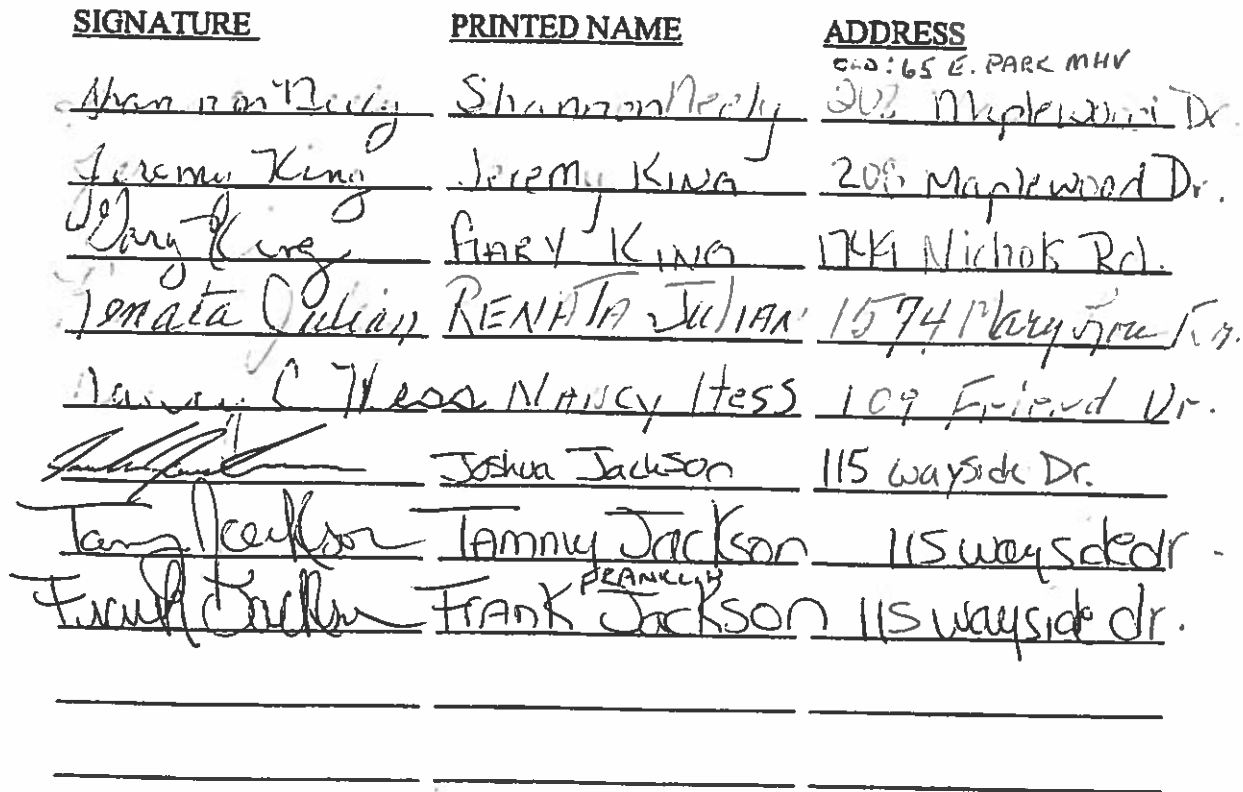 SIGNATURE PRINTED NAME ADDRESS
OLD: 65 E. PARK MHV
Shannon Neely Shannon Neely Maplewood Dr.
Jeremy King Jeremy KING 208 Maplewood Dr.
Gary King GARY KING Nichols Rd.
Renata Julian RENATA JULIAN 1574 Mary
Nancy C Hess NANCY Hess 109 Friend Dr.
Joshua Jackson 115 wayside Dr.
Tammy Jackson 115 wayside dr.
FRANKLIN
Frank Jackson FRANK Jackson 115 wayside dr.